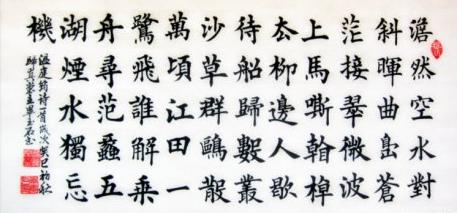 澹然空水對
斜暉曲島蒼
茫接翠微波
上馬嘶翰棹
厺柳邊人歇
待船歸數叢
沙草群鷗散
萬頃江田一
鷺飛誰解乘
舟尋范蠡五
湖煙水獨忘
機
溫庭筠詩一首歲次癸巳初秋